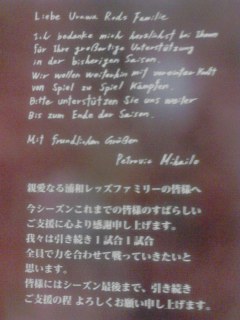 Liebe Urawa Reds Familie
Ich bedanke mich herzlichst bei Ihnen
für Ihre großartige Unterstützung
in der bisherigen Saison.
Wir wollen weiterhin mit vereinter Kraft
von Spiel zu Spiel kämpfen.
Bitte unterstützen Sie uns weiter
bis zum Ende der Saison.
Mit freundlichen Grüßen
Petrovic Mihailo
親愛なる浦和レッズファミリーの皆様へ
今シーズンこれまでの皆様のすばらしい
ご支援に心より感謝申し上げます。
我々は引き続き1試合1試合
全員で力を合わせて戦っていきたいと
思います。
皆様にはシーズン最後まで、引き続き
ご支援の程 よろしくお願い申し上げます。